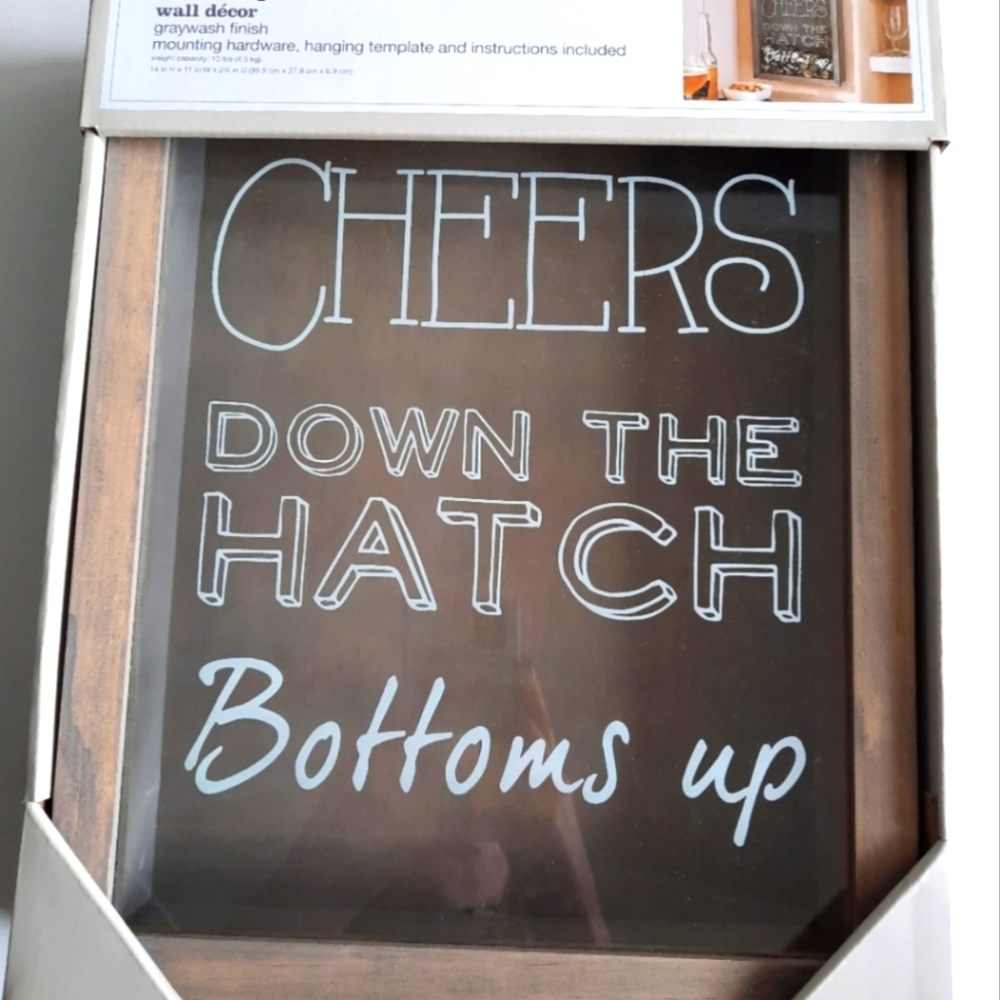 wall décor
graywash finish
mounting hardware, hanging template and instructions included
weight capacity: 10 lbs (4.5 kg)
CHEERS
DOWN THE
HATCH
Bottoms up
CHEERS
DOWN THE
HATCH
Bottoms up